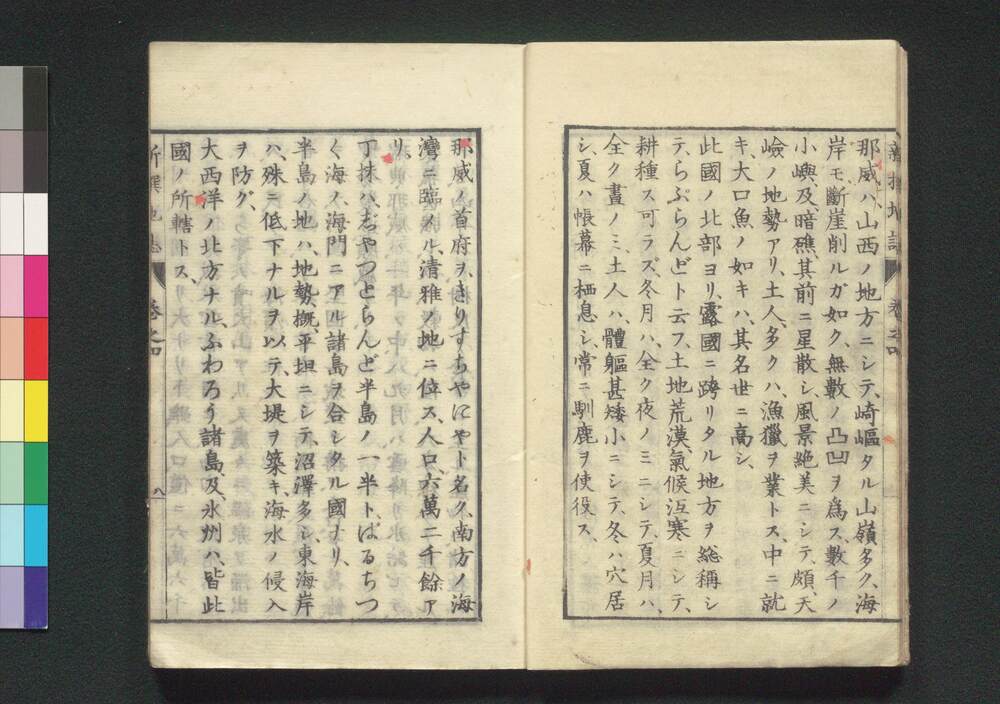 那威ハ、山西ノ地方ニシテ、崎嶇タル山嶺多ク、海
岸モ、斷崖削ルガ如ク、無數ノ凸凹ヲ爲ス、數千ノ
小嶼、及、暗礁、其前ニ星散シ、風景絶美ニシテ、頗、天
嶮ノ地勢アリ、土人、多クハ、漁獵ヲ業トス、中ニ就
キ、大口魚ノ如キハ、其名世ニ高シ、
此國ノ北部ヨリ、露國ニ跨リタル地方ヲ、総稱シ
テ、らぷらんどト云フ、土地荒漠、氣候冱寒ニシテ、
耕種ス可ラズ、冬月ハ、全ク夜ノミニシテ、夏月ハ、
全ク晝ノミ、土人ハ、體軀甚矮小ニシテ、冬ハ穴居
シ、夏ハ帳幕ニ栖息シ、常ニ馴鹿ヲ使役ス、
那威ノ首府ヲ、きりすちやにやト名ク、南方ノ海
灣ニ臨メル、清雅ノ地ニ位ス、人口、六萬二千餘ア
リ、
丁抹ハ、ぢやつとらんど半島ノ一半ト、ばるちつ
く海ノ海門ニアル諸島ヲ合シタル國ナリ、
半島ノ地ハ、地勢概、平坦ニシテ、沼澤多シ、東海岸
ハ、殊ニ低下ナルヲ以テ、大堤ヲ築キ、海水ノ侵入
ヲ防グ、
大西洋ノ北方ナル、ふわろう諸島、及、氷州ハ、皆此
國ノ所轄トス、
新撰地誌
卷之四
八